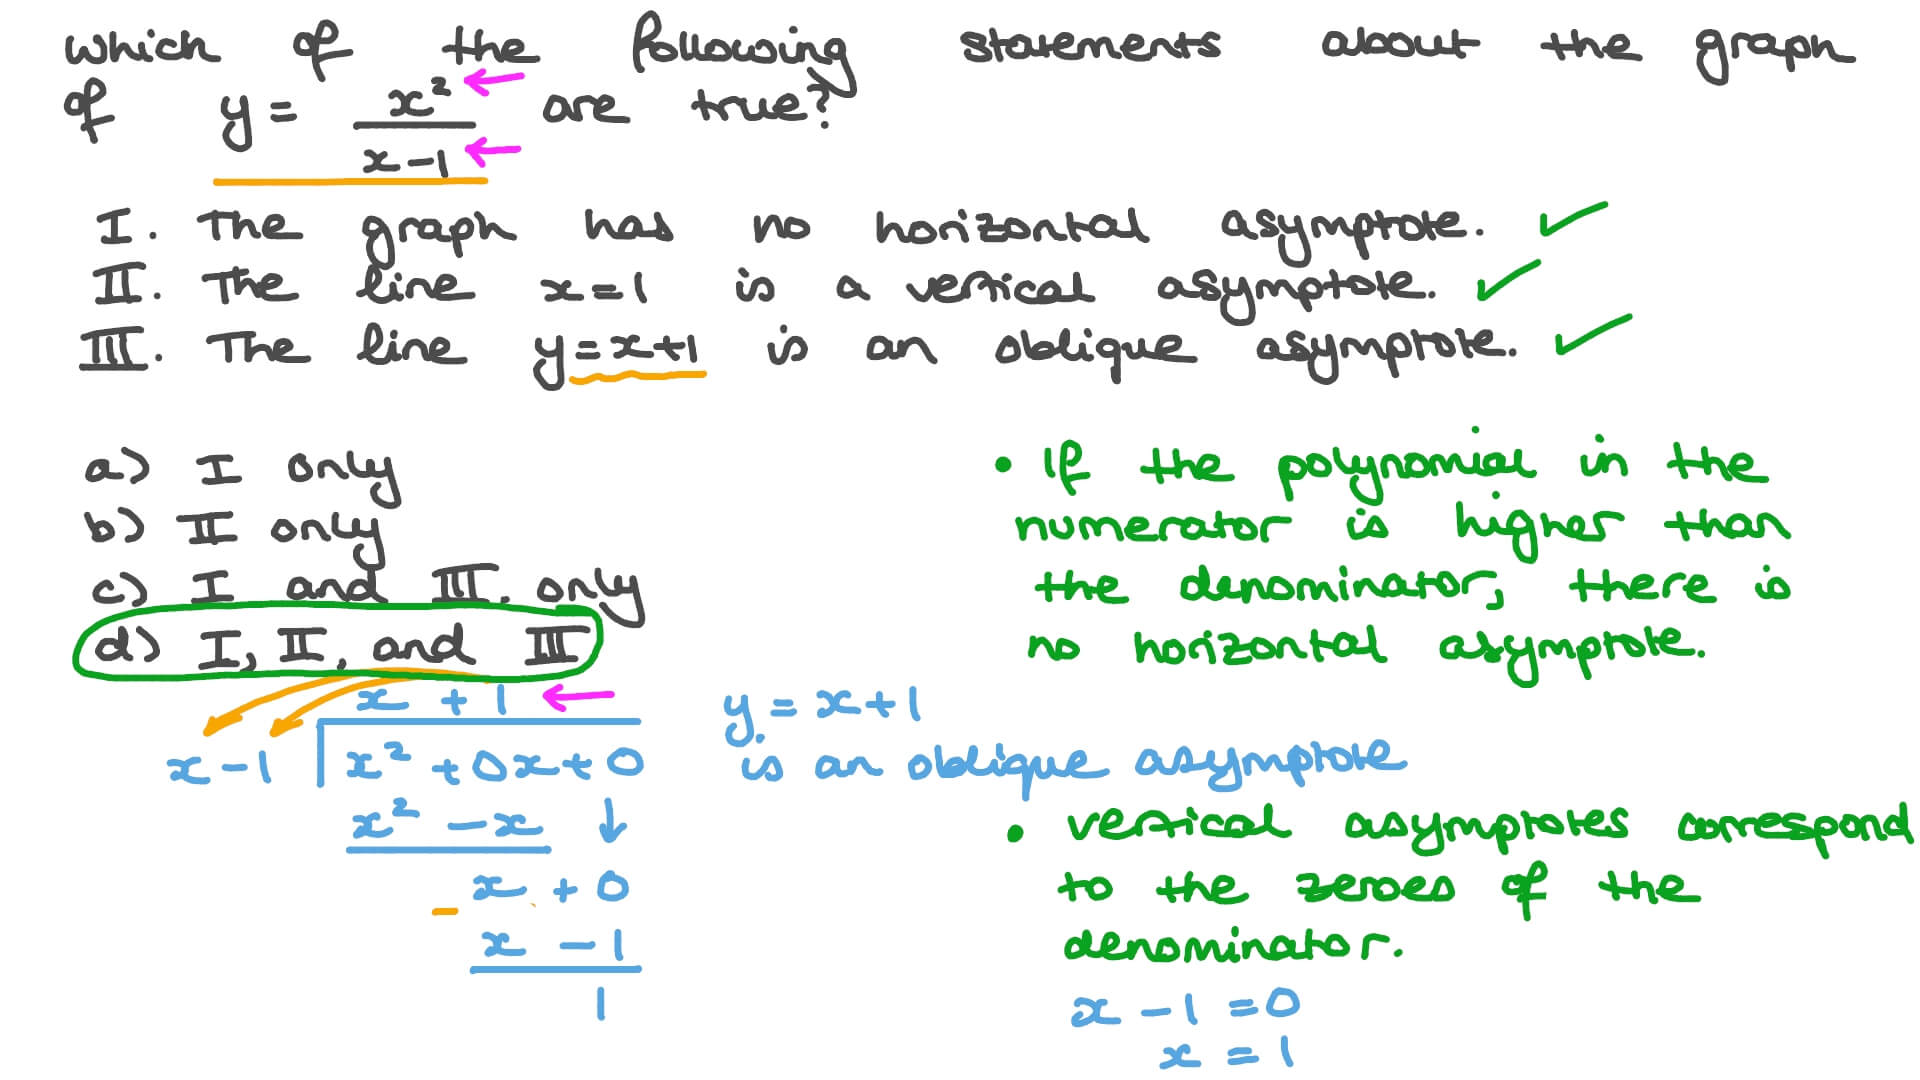 Which of the following statements about the graph
of y = x²/(x-1) are true?
I. The graph has no horizontal asymptote. ✓
II. The line x=1 is a vertical asymptote. ✓
III. The line y=x+1 is an oblique asymptote. ✓
a) I only
b) II only
c) I and III only
d) I, II, and III
• If the polynomial in the
numerator is higher than
the denominator, there is
no horizontal asymptote.
x + 1
x-1 | x² + 0x + 0
x² - x ↓
- x + 0
x - 1
1
y = x+1
is an oblique asymptote
• vertical asymptotes correspond
to the zeroes of the
denominator.
x - 1 = 0
x = 1